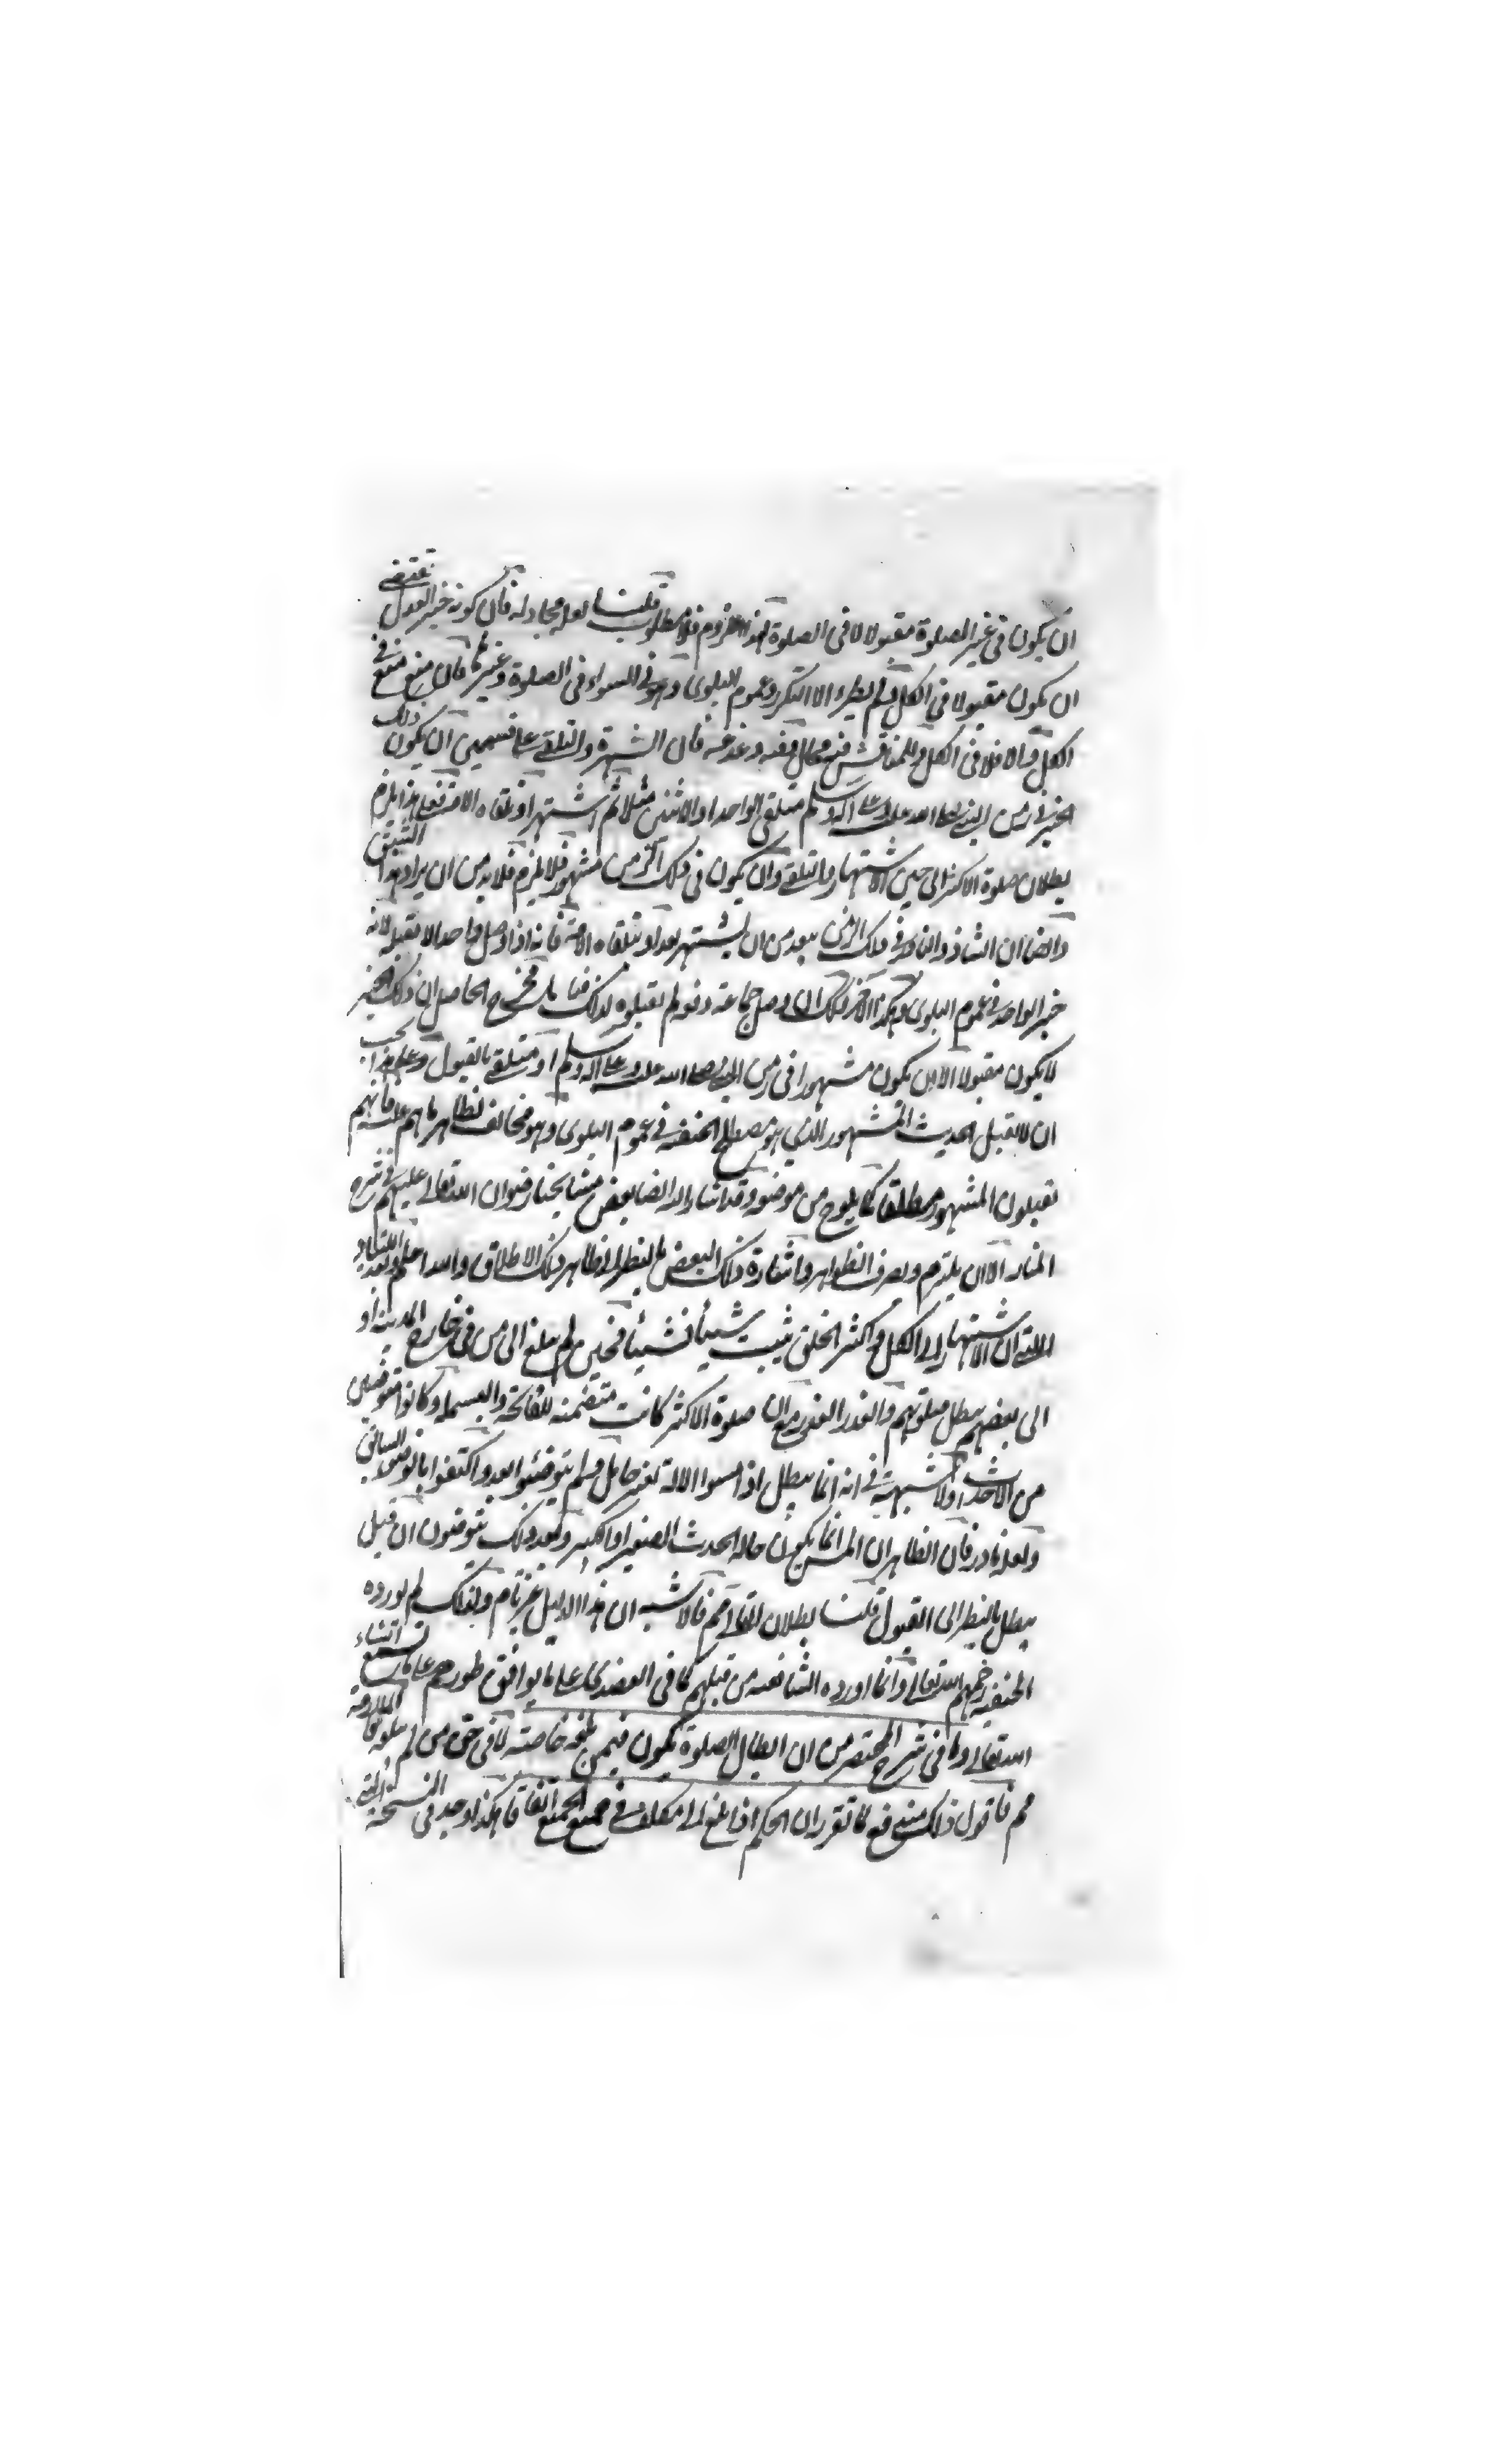 ان يكون في غير الصلوة مقبولا لا في الصلوة لهذا اللزوم فلا مطلوب قلنا لعله مجادلة فان كونه خبر العدل يقتضي
ان يكون مقبولا في الكل ولم يطرء الا التكرر وعموم البلوى وهو في السواء في الصلوة وغيرها فان منع منع في
الكل والا فلا في الكل وللمناقش فيه مجال وفيه دغدغة فان الشهرة والتلقي على قسمين ان يكون ذلك
الخبر في زمن النبي صلى الله عليه وعلى آله وسلم متلقي الواحد او الاثنين مثلا ثم اشتهر او تلقاه الامة فعلى هذا يلزم
بطلان صلوة الاكثر الى حين الاشتهار والتلقي وان يكون في ذلك الزمن مشهورا فلا يلزم فلا بد من ان يراد هذا الشق
وايضا ان الشاذ والنادر في ذلك الزمن يبعد من ان يشتهر بعد او تتلقاه الامة فانه اذا وصل واحدا لا يقبله لانه
خبر الواحد في عموم البلوى وهكذا الآخر فذلك ان وصل جماعة دفعة لم يقبلوه لذلك فتأمل فخرج الحاصل ان ذلك الخبر
لا يكون مقبولا الا بان يكون مشهورا في زمن النبي صلى الله عليه وعلى آله وسلم او متلقى بالقبول وعلى هذا يجب
ان لا يقبل الحديث المشهور الذي هو مصطلح الحنفية في عموم البلوى وهو مخالف لظاهر ما هم عليه فانهم
يقبلون المشهور مطلقا كما يلوح من موضعه وقد اشار اليه ايضا بعض مشايخنا رضوان الله تعالى عليهم في شرح
المنار الا ان يلتزم ويصرف الظواهر واشارة ذلك البعض بالنظر الى ظاهر ذلك الاطلاق والله اعلم وبعد
ان الاشتهار الى الكل واكثر الخلق يثبت شيئا فشيئا فحين لم يبلغ الى من في خارج المدينة او
الى بعضهم يبطل صلوتهم والعذر العذر مع ان صلوة الاكثر كانت متضمنة للفاتحة والبسملة وكانوا متوضئين
من الاحداث ولا شبهة في انه انما يبطل اذا مسوا الآلة بغير حائل ولم يتوضئوا بعد واكتفوا بالوضوء السابق
ولعله نادر فان الظاهر ان المس انما يكون حالة الحدث الصغير او الكبير وبعد ذلك يتوضئون ان قيل
يبطل بالنظر الى القبول قلنا بطلان التالي ثم فالاشبه ان هذا الدليل غير تام ولذلك لم يورده
الحنفية رحمهم الله تعالى وانما اورده الشافعية من قبلهم كما في العضدي على ما يوافق طورهم على ما سيجيء انشاء
الله تعالى وما في شرح المختصر من ان ابطال الصلوة يكون فيمن بلغه خاصة لا في حق من لم يبلغه فالملازمة
ثم فاقول ذلك مندفع لما تقرر ان الحكم اذا بلغ الى مكلف في جميع الجميع اتفاقا هكذا وجد في النسخة